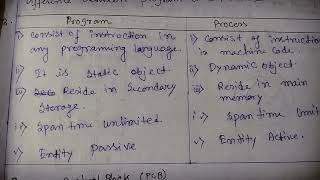 difference between program a
Program Process
i) Consist of instruction in
any programing language.
i) Consist of instruction
in machine code.
ii) It is static object.
ii) Dynamic object.
iii) Reside in Secondary
Storage.
iii) Reside in main
memory
iv) Span time unlimited.
iv) Span time limit
v) Entity Passive
v) Entity Active.
Block (PCB)